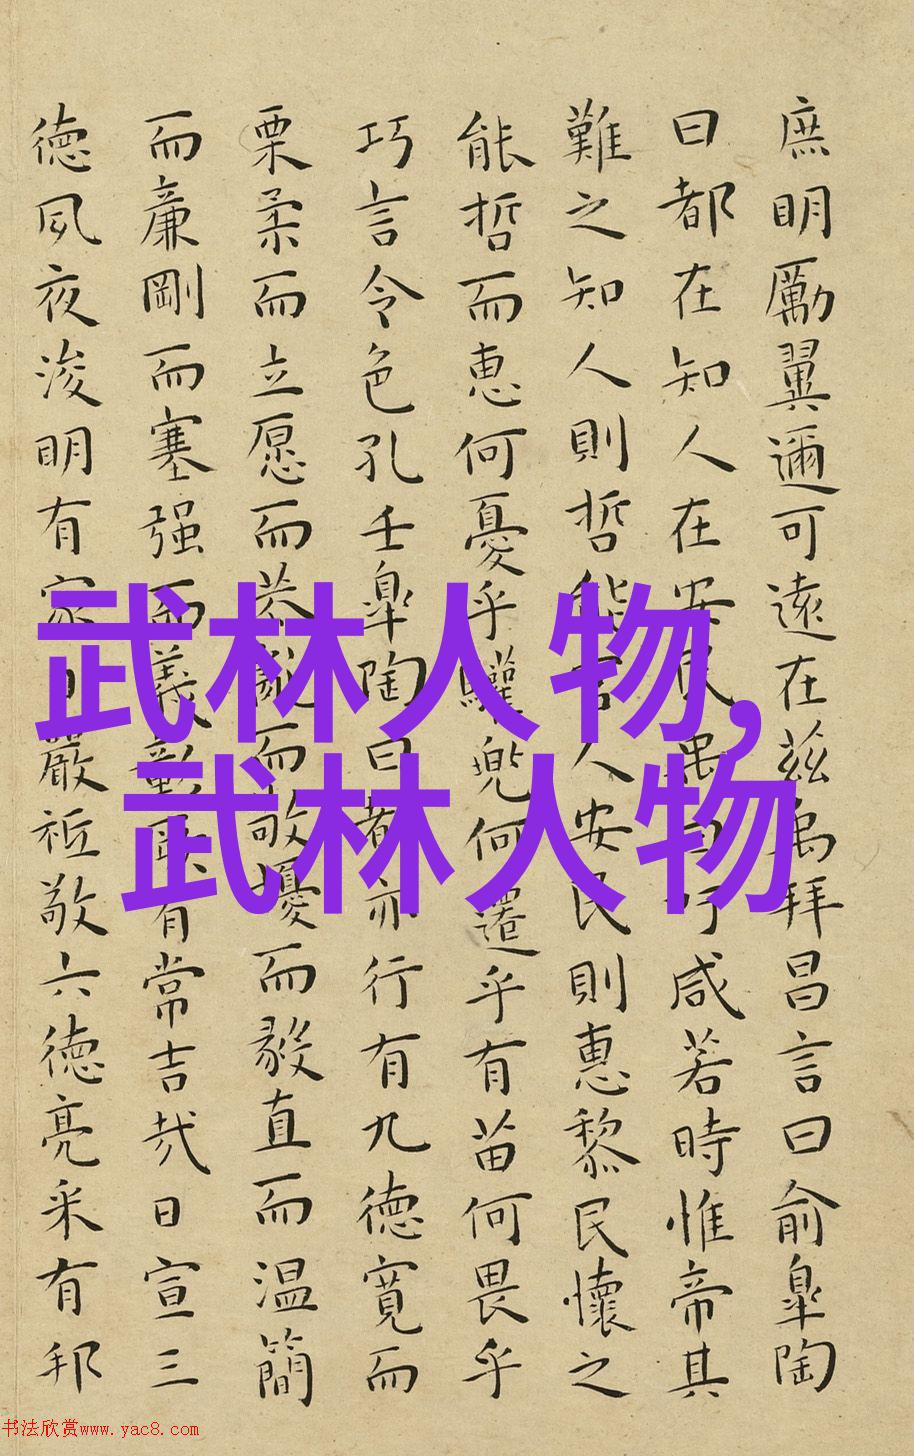 庶明厲翼邇可遠在茲禹拜昌言曰俞皐陶
曰都在知人在安民禹曰吁咸若時惟帝其
難之知人則哲能官人安民則惠黎民懷之
能哲而恵何憂乎驩兜何遷乎有苗何畏乎
巧言令色孔壬皐陶曰都亦行有九德寛而
栗柔而立愿而恭亂而敬擾而毅直而温簡
而廉剛而塞强而義彰厥有常吉哉日宣三
徳夙夜浚明有家日嚴祗敬六德亮采有邦
武林人物,
武林人物
书法欣赏www.yac8.com